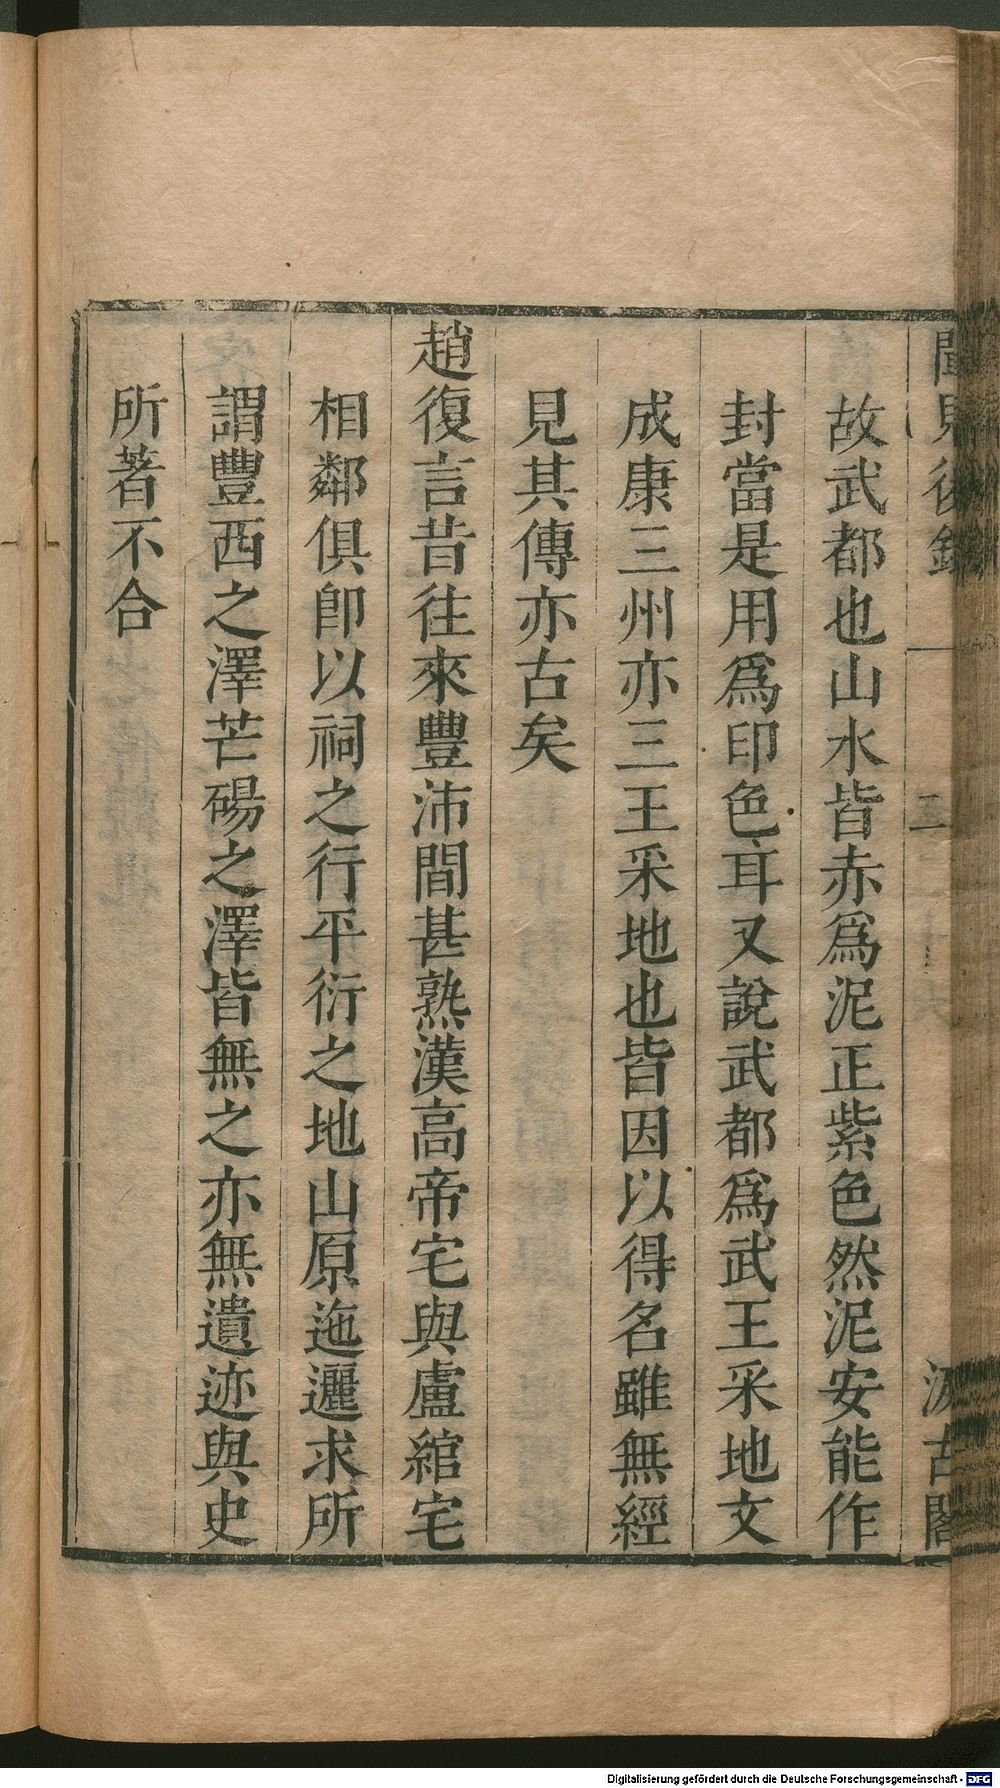 聞見後錄
二
汲古閣
故武都也山水皆赤爲泥正紫色然泥安能作
封當是用爲印色耳又說武都爲武王采地文
成康三州亦三王采地也皆因以得名雖無經
見其傳亦古矣
趙復言昔往來豐沛間甚熟漢高帝宅與盧綰宅
相鄰俱卽以祠之行平衍之地山原迤邐求所
謂豐西之澤芒碭之澤皆無之亦無遺迹與史
所著不合
Digitalisierung gefördert durch die Deutsche Forschungsgemeinschaft - DFG